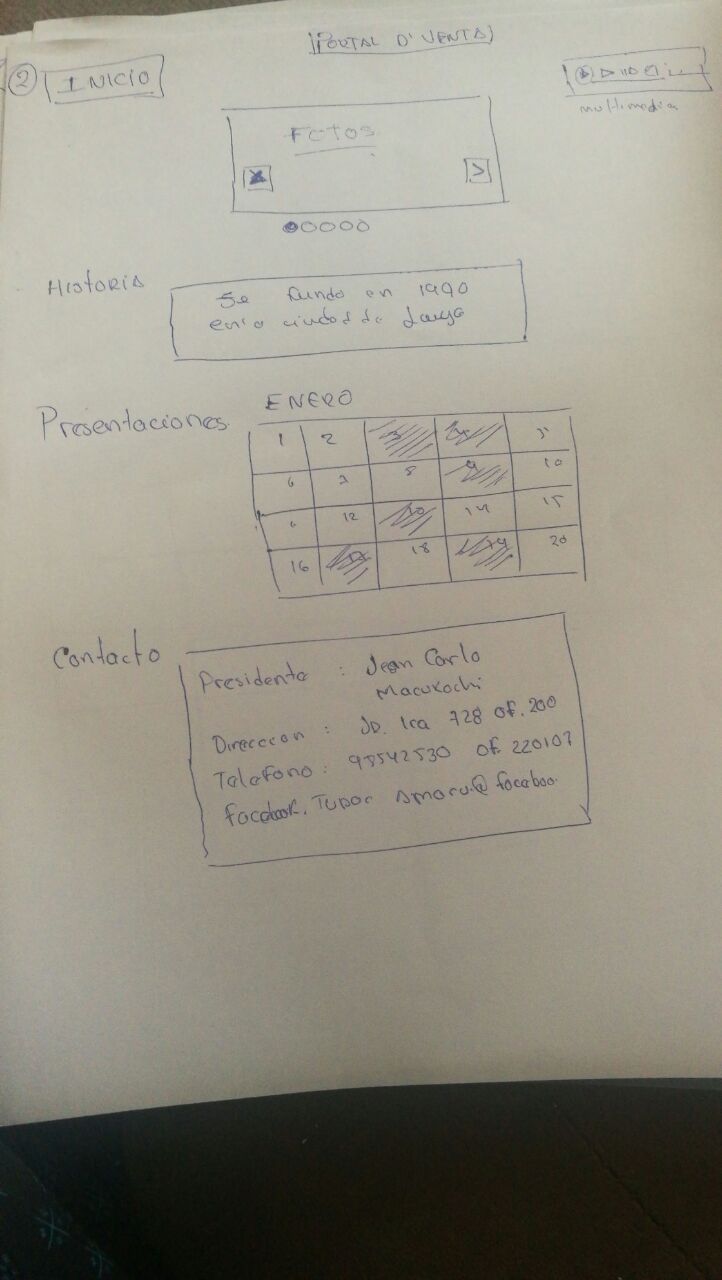 PORTAL D' VENTA
2 INICIO
multimedia
FOTOS
>
Historia
Se fundo en 1990
en la ciudad de
Presentaciones
ENERO
1 2 3 5
6 7 8 9 10
12 14 15
16 18 19 20
Contacto
Presidente : Jean Carlo
Macukachi
Direccion : JD. Ica 728 of. 200
Telefono : 95542530 of. 220107
facebook. Tupac Amaru@faceboo